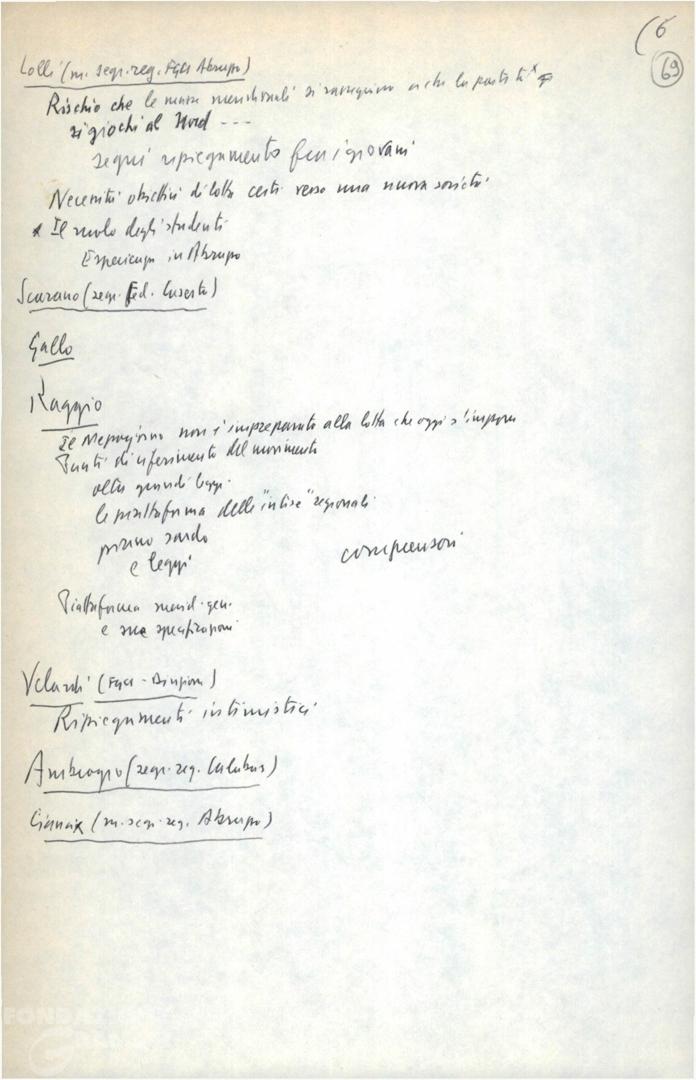 (6
69
Lolli (m. segr. reg. FGCI Abruzzo)
Rischio che le masse meridionali si rassegnino a che la partita *
si giochi al Nord ---
segni ripiegamento fra i giovani
Necessità obiettivi di lotta certi verso una nuova società
* Il ruolo degli studenti
Esperienza in Abruzzo
Scarano (segr. Fed. Caserta)
Gallo
Raggio
Il Mezzogiorno non è impreparato alla lotta che oggi s'impone
Punti di riferimento del movimento
oltre grandi leggi
le piattaforma delle "intese" regionali
piano sardo
e leggi
comprensori
Piattaforma merid. gen.
e sue specificazioni
Velardi (FGCI - Direzione)
Ripiegamenti intimistici
Ambrogio (segr. reg. Calabria)
(m. segr. reg. Abruzzo)
FONDAZI